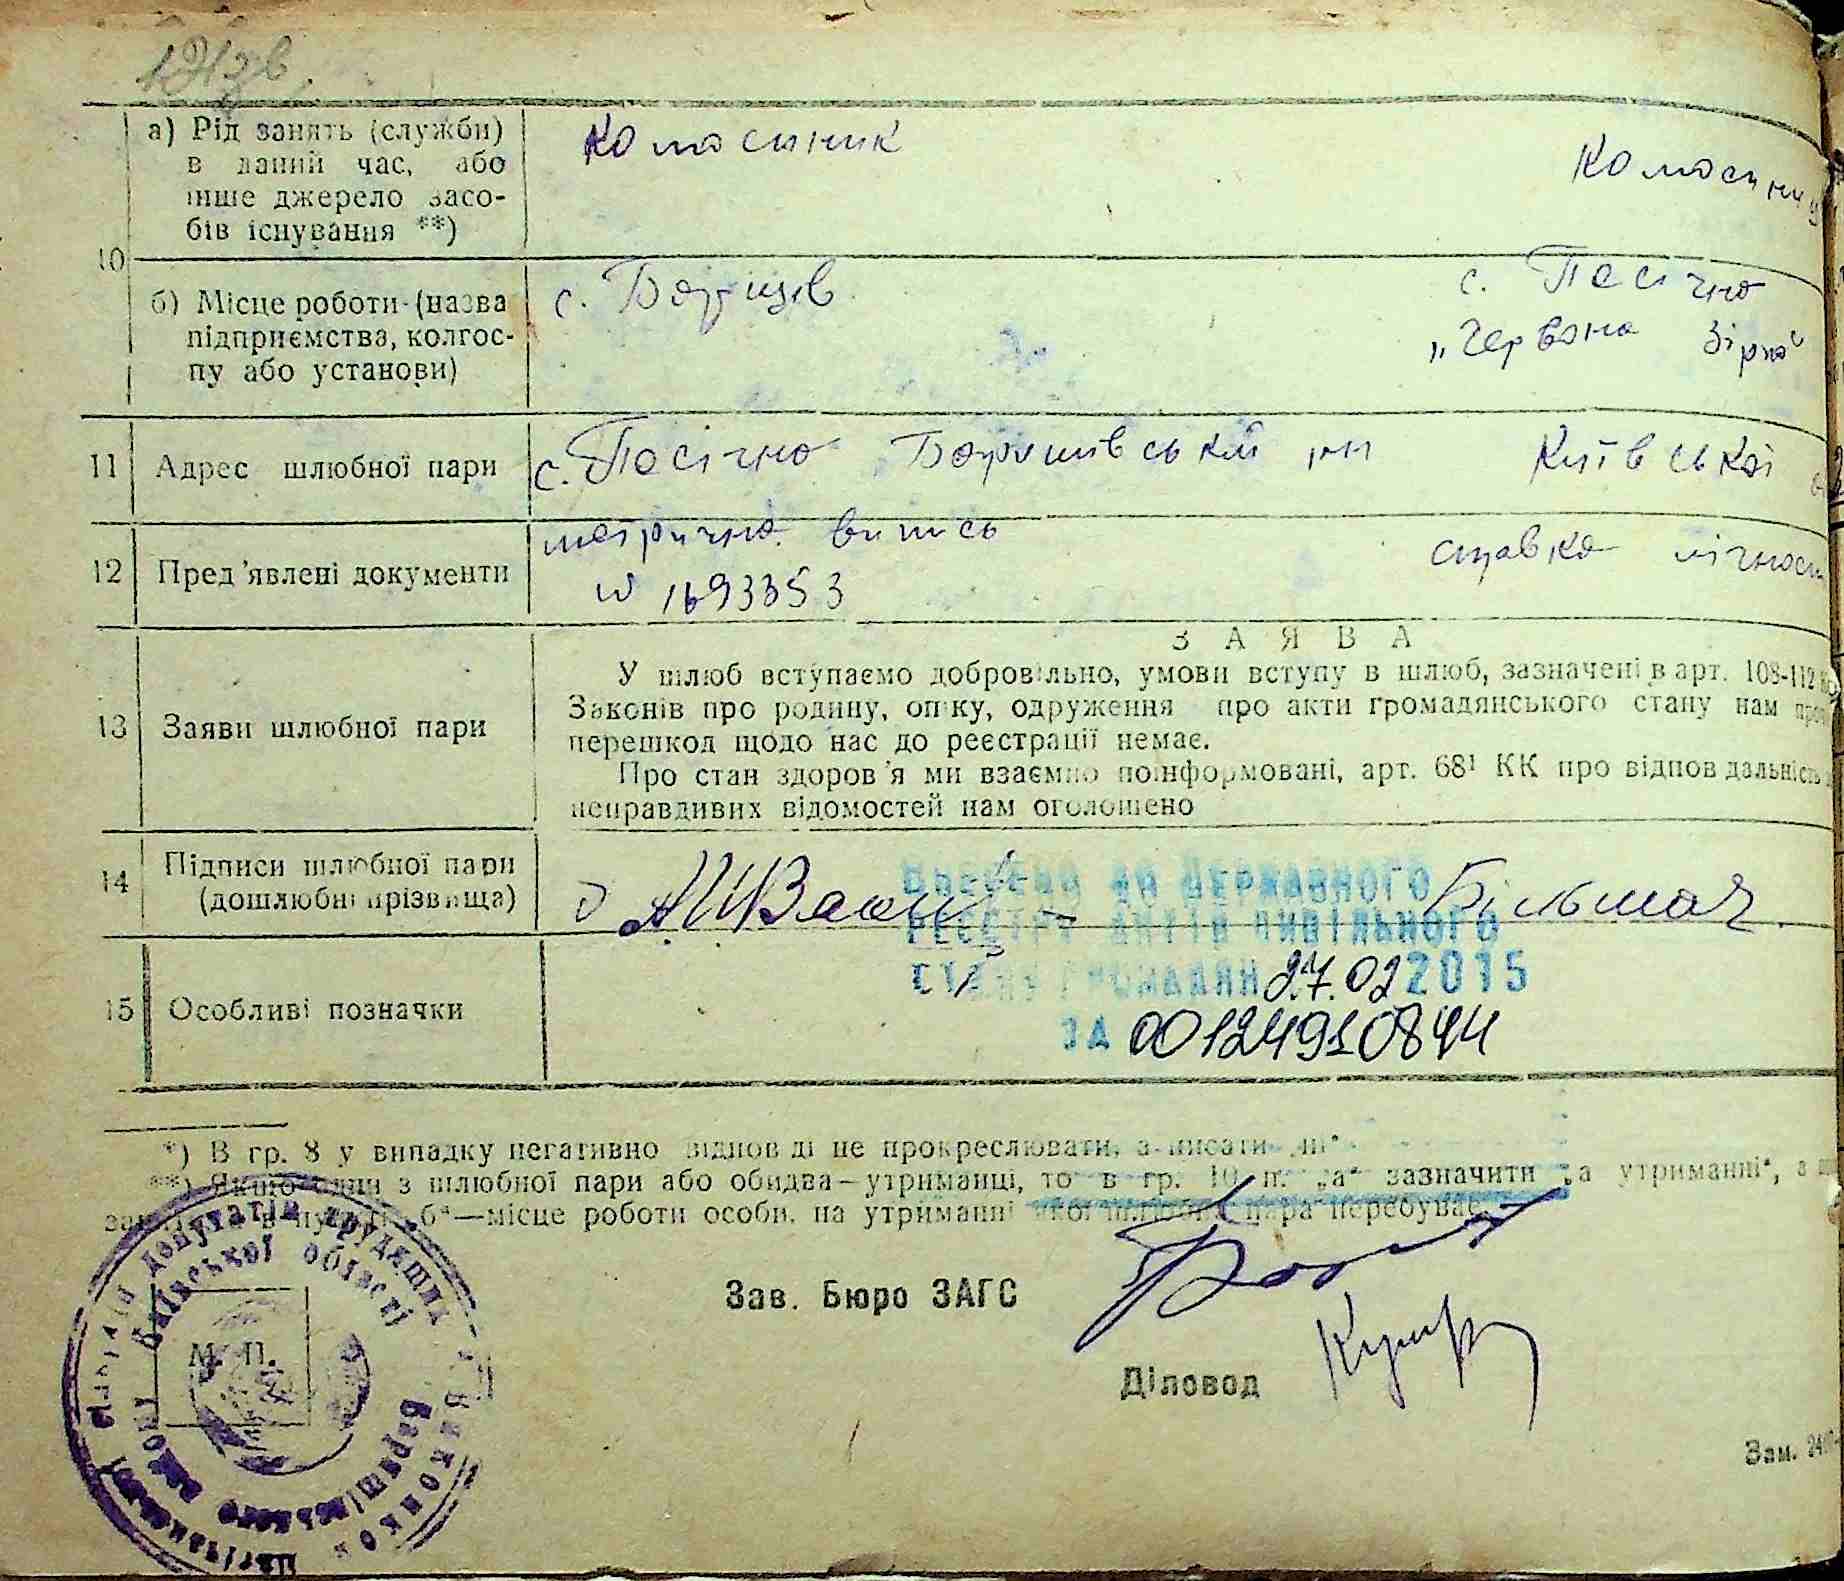 10
а) Рід занять (служби)
в даний час, або
інше джерело засо-
бів існування **)
б) Місце роботи (назва
підприємства, колгос-
пу або установи)
с. Пасічно
„Червона Зірка“
11 Адрес шлюбної пари
с. Пасічно Баришівський рн Київської
12 Пред'явлені документи
метрична випись
№ 1693353
справка
13 Заяви шлюбної пари
ЗАЯВА
У шлюб вступаємо добровільно, умови вступу в шлюб, зазначені в арт. 108-112
Законів про родину, опіку, одруження про акти громадянського стану нам
перешкод щодо нас до реєстрації немає.
Про стан здоров'я ми взаємно поінформовані, арт. 68¹ КК про відповідальність
неправдивих відомостей нам оголошено
14 Підписи шлюбної пари
(дошлюбні прізвища)
Більмач
Внесено до Державного
реєстру актів цивільного
стану громадян 27.02 2015
ЗА 00124910844
15 Особливі позначки
*) В гр. 8 у випадку негативно відповіді не прокреслювати, а писати „ні“
**) Якщо один з шлюбної пари або обидва—утриманці, то в гр. 10 п. „а“ зазначити „а утриманні“, а
в „б“—місце роботи особи, на утриманні якої шлюбна пара перебуває
Зав. Бюро ЗАГС
Діловод
М. П.
депутатів трудящих
Київської області
Виконком
Баришівського району
Зам.